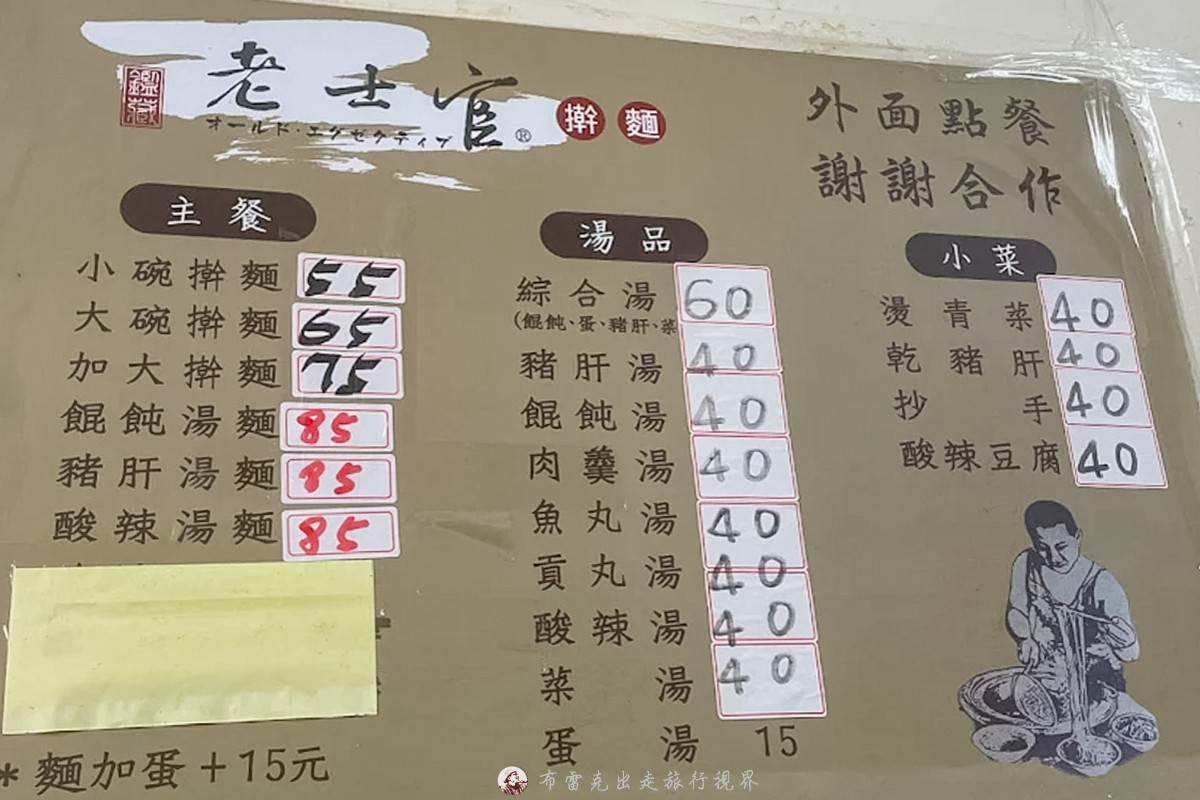 鑑藏
老士官
オールド・エクゼクティブ®
擀麵
外面點餐
謝謝合作
主餐
小碗擀麵 55
大碗擀麵 65
加大擀麵 75
餛飩湯麵 85
豬肝湯麵 85
酸辣湯麵 85
*麵加蛋+15元
湯品
綜合湯 60
(餛飩、蛋、豬肝、菜
豬肝湯 40
餛飩湯 40
肉羹湯 40
魚丸湯 40
貢丸湯 40
酸辣湯 40
菜湯 40
蛋湯 15
小菜
燙青菜 40
乾豬肝 40
抄手 40
酸辣豆腐 40
布雷克出走旅行視界